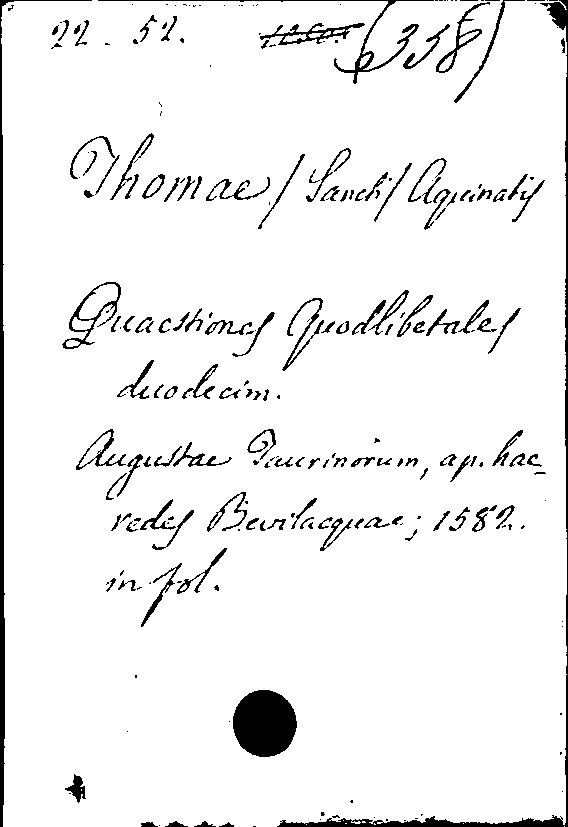 22. 52. (358)
Thomae / Sancti / Aquinatis
Quaestiones Quodlibetales
duodecim.
Augustae Taurinorum, ap. hae-
redes Bevilacquae; 1582.
in fol.